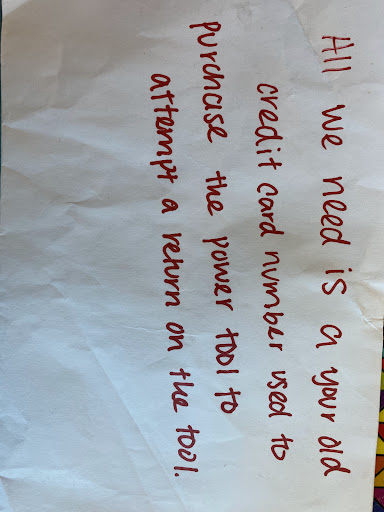 All we need is a your old
credit card number used to
purchase the power tool to
attempt a return on the tool.